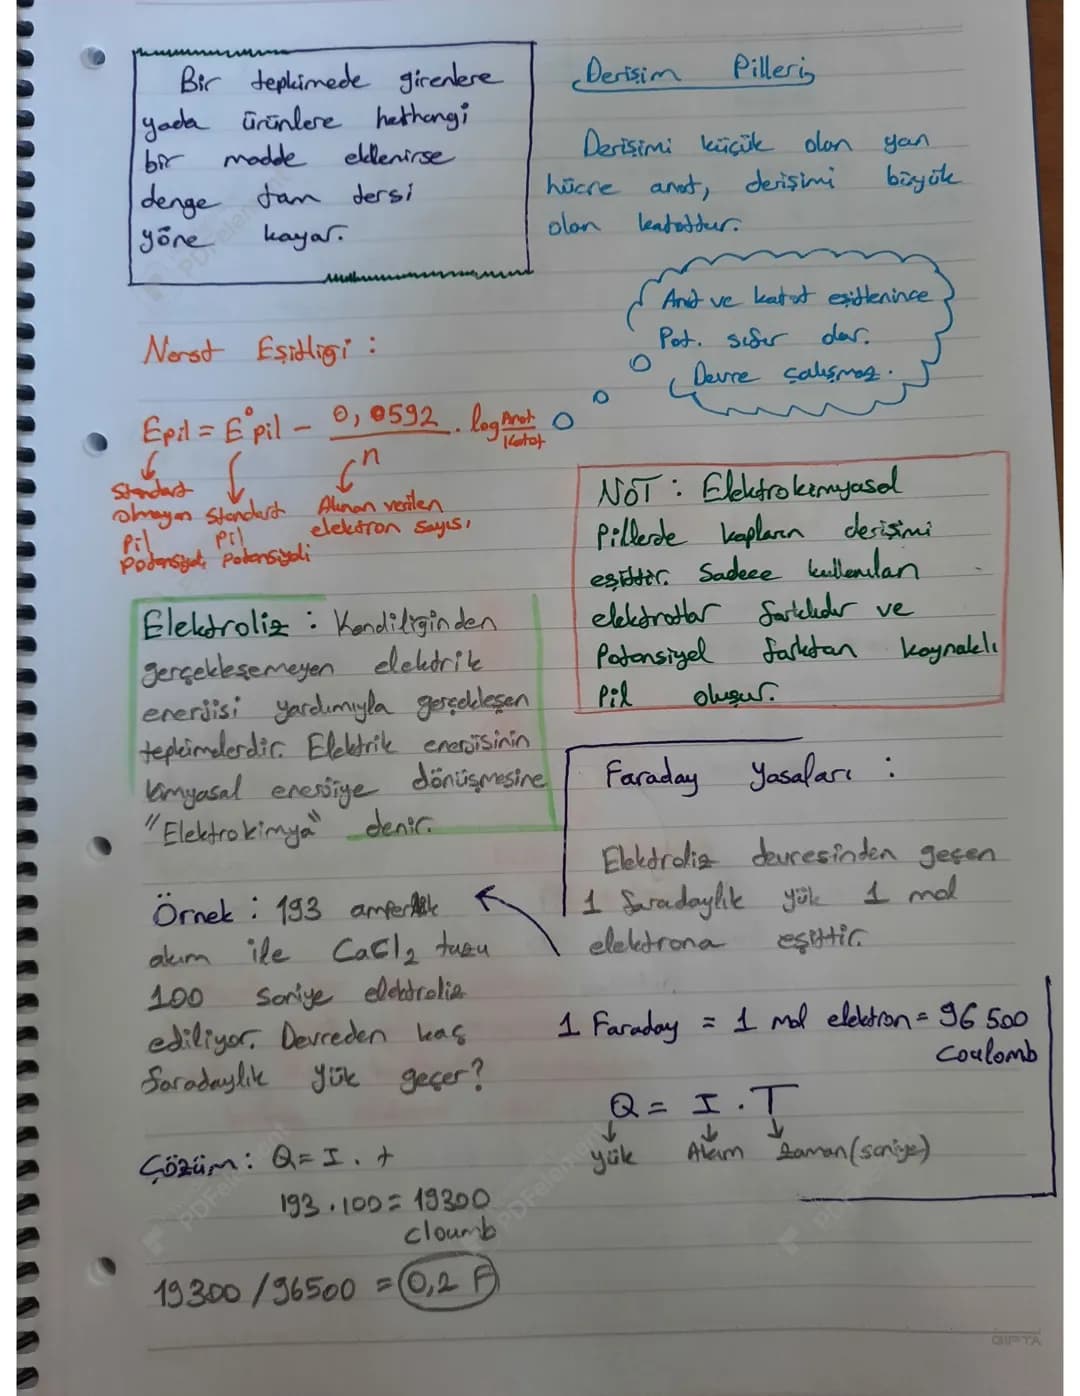 Bir tepkimede girenlere
yada ürünlere herhangi
bir madde eklenirse
denge tam tersi
yöne kayar.
Derişim Pilleri
Derişimi küçük olan yarı
hücre anot, derişimi büyük
olan katottur.
Anot ve katot eşitlenince
Pot. sıfır olur.
Devre çalışmaz.
Nerst Eşitliği :
Epil = E°pil - 0,0592 . log Anot
n Katot
Standart
olmayan
Pil
Potansiyeli
Standart
Pil
Potansiyeli
Alınan verilen
elektron sayısı
NOT : Elektrokimyasal
Pillerde kapların derişimi
eşittir. Sadece kullanılan
elektrotlar farklıdır ve
Potansiyel farktan kaynaklı
Pil oluşur.
Elektroliz : Kendiliğinden
gerçekleşemeyen elektrik
enerjisi yardımıyla gerçekleşen
tepkimelerdir. Elektrik enerjisinin
kimyasal enerjiye dönüşmesine
"Elektrokimya" denir.
Faraday Yasaları :
Elektroliz devresinden geçen
1 faradaylık yük 1 mol
elektrona eşittir.
1 Faraday = 1 mol elektron = 96 500
Coulomb
Q = I . T
yük Akım zaman (saniye)
Örnek : 193 amperlik
akım ile CaCl2 tuzu
100 saniye elektroliz
ediliyor. Devreden kaç
faradaylık yük geçer?
Çözüm : Q = I . t
193 . 100 = 19300
cloumb
19300 / 96500 = 0,2 F
GIPTA
PDFelement
PDFelement
PDFelement
PDFelement